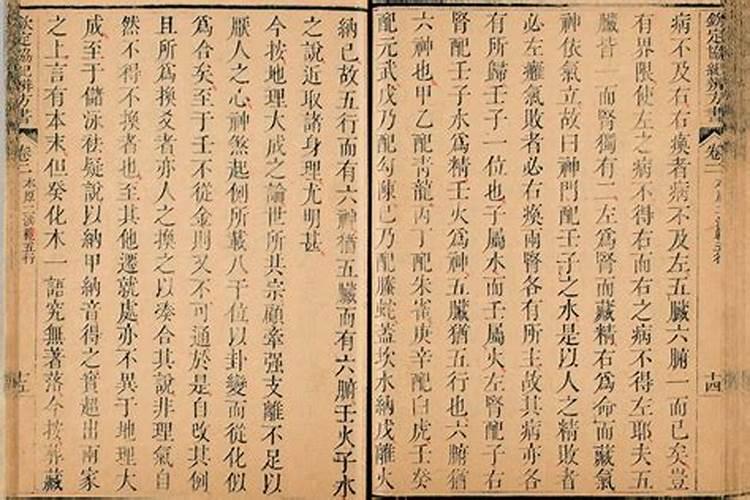 欽定協紀辨方書 卷二 本原二 洪範五行 十四
病不及右右瘓者病不及左五臟六腑一而已矣豈
有界限使左之病不得右而右之病不得左耶夫五
臟皆一而腎獨有二左爲腎而藏精右爲命而藏氣
神依氣立故曰神門配壬子之水是以人之精敗者
必左癱氣敗者必右瘓兩腎各有所主故其病亦各
有所歸壬子一位也子屬水而壬屬火左腎配子右
腎配壬子水爲精壬火爲神五臟猶五行也六腑猶
六神也甲乙配靑龍丙丁配朱雀庚辛配白虎壬癸
配元武戊乃配勾陳己乃配螣蛇蓋坎水納戊離火
納己故五行而有六神猶五臟而有六腑壬火子水
之說近取諸身理尤明甚
今按地理大成之論世所共宗顧牽强支離不足以
厭人之心神煞起例所載八干位以卦變而從化似
爲合矣至于壬不從金則又不可通於是自改其例
且所爲換爻者亦人之換之以湊合其說非理氣自
然不得不換者也至其他遷就處亦不異于地理大
成至于儲泳祛疑說以納甲納音得之實超出兩家
之上言有本末但癸化木一語究無著落今按葬藏
欽定協紀辨方書 卷二 本原二 洪範五行